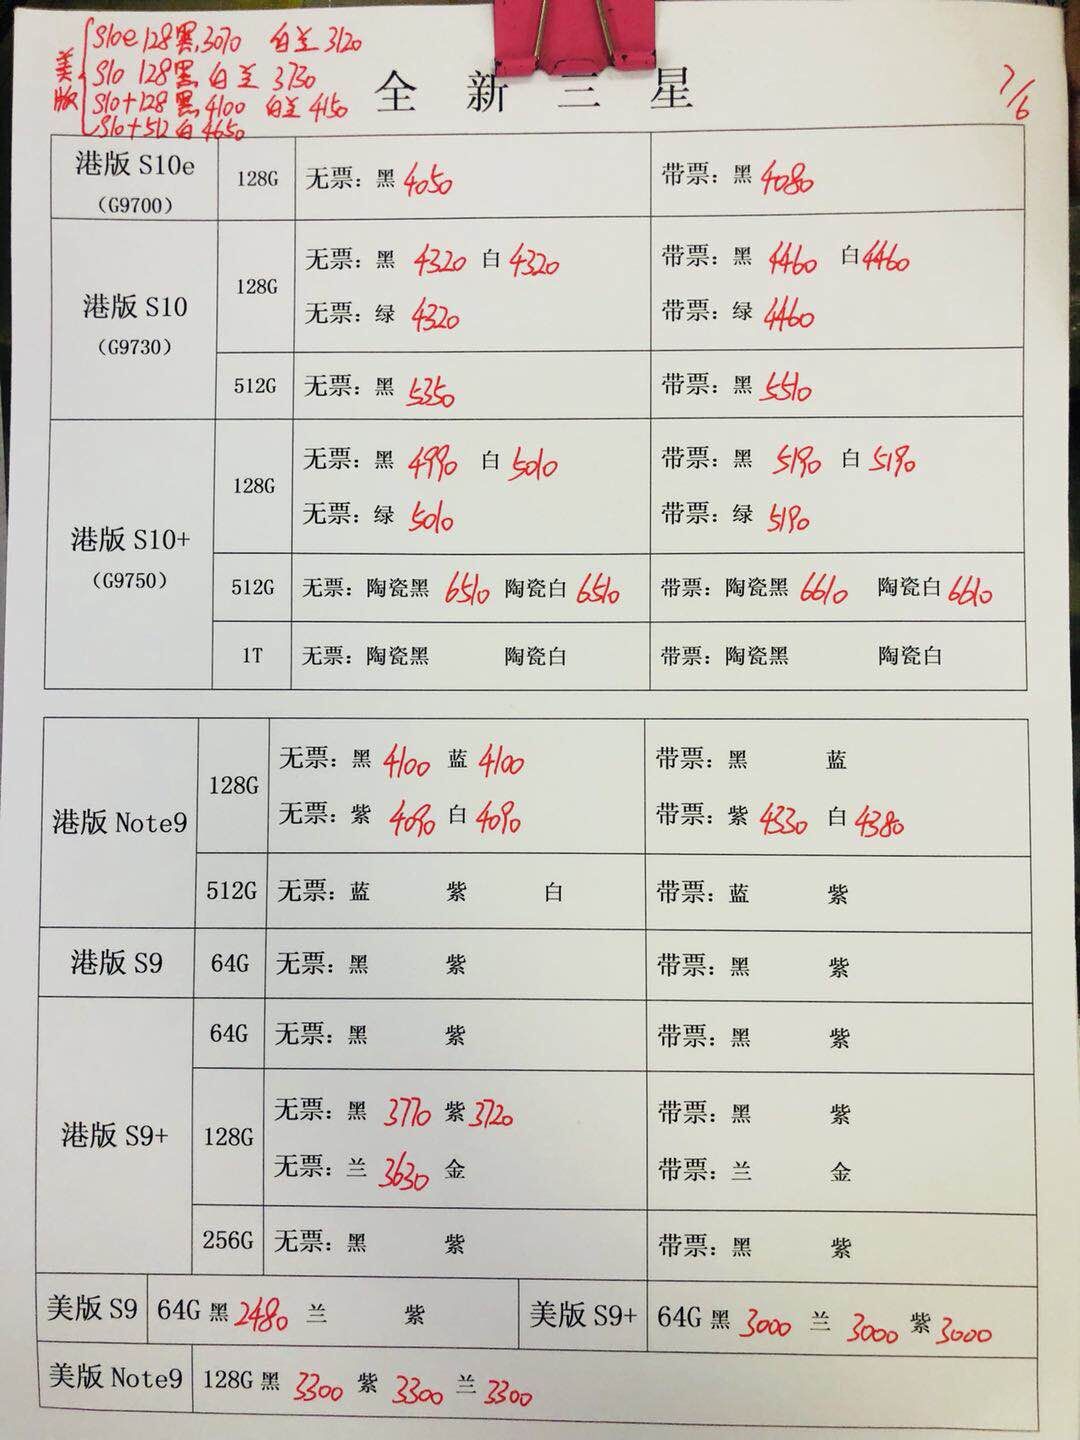 美版
S10e 128黑 3070 白兰 3120
S10 128黑 白兰 3730
S10+128黑 4100 白兰 4150
S10+512白 4650
全新三星
7/6
港版 S10e
(G9700)
128G
无票:黑 4050
带票:黑 4080
港版 S10
(G9730)
128G
无票:黑 4320 白 4320
带票:黑 4460 白 4460
无票:绿 4320
带票:绿 4460
512G
无票:黑 5350
带票:黑 5510
港版 S10+
(G9750)
128G
无票:黑 4990 白 5010
带票:黑 5190 白 5190
无票:绿 5010
带票:绿 5190
512G
无票:陶瓷黑 6510 陶瓷白 6510
带票:陶瓷黑 6610 陶瓷白 6610
1T
无票:陶瓷黑 陶瓷白
带票:陶瓷黑 陶瓷白
港版 Note9
128G
无票:黑 4100 蓝 4100
带票:黑 蓝
无票:紫 4090 白 4090
带票:紫 4330 白 4380
512G
无票:蓝 紫 白
带票:蓝 紫
港版 S9
64G
无票:黑 紫
带票:黑 紫
港版 S9+
64G
无票:黑 紫
带票:黑 紫
128G
无票:黑 3770 紫 3720
带票:黑 紫
无票:兰 3630 金
带票:兰 金
256G
无票:黑 紫
带票:黑 紫
美版 S9
64G 黑 2480 兰 紫
美版 S9+
64G 黑 3000 兰 3000 紫 3000
美版 Note9
128G 黑 3300 紫 3300 兰 3300